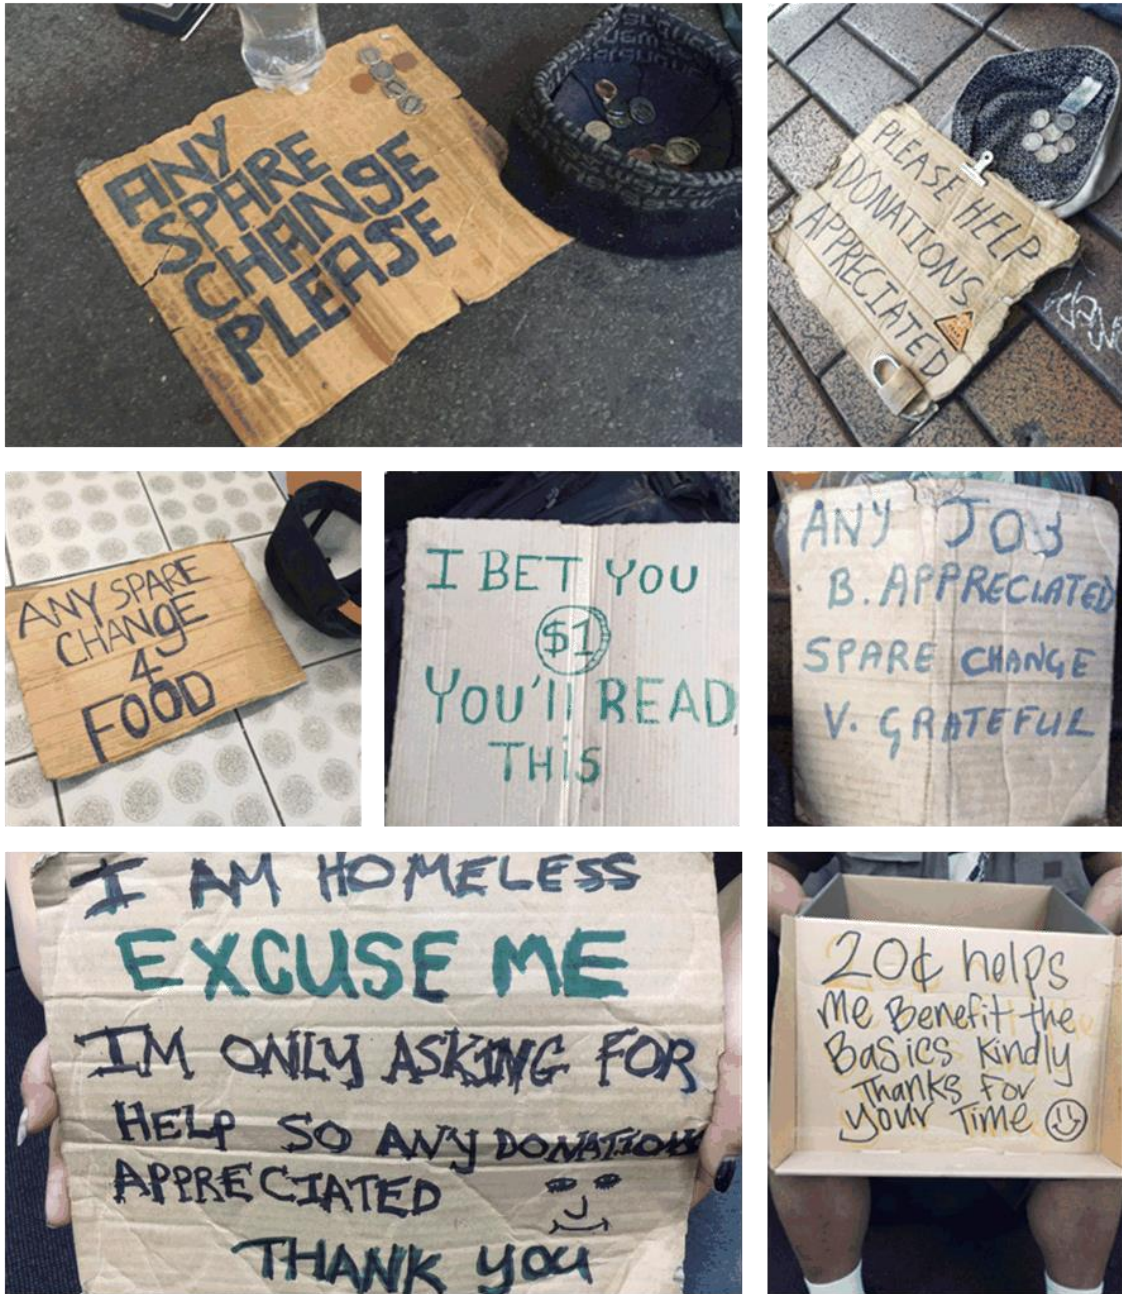 ANY
SPARE
CHANGE
PLEASE
PLEASE HELP
DONATIONS
APPRECIATED
ANY SPARE
CHANGE
4
FOOD
I BET YOU
$1
YOU'll READ
THiS
ANY JOB
B. APPRECIATED
SPARE CHANGE
V. GRATEFUL
I AM HOMELESS
EXCUSE ME
IM ONLY ASKING FOR
HELP SO ANY DONATIONS
APPRECIATED
THANK YOU
20¢ helps
me Benefit the
Basics Kindly
Thanks For
your Time